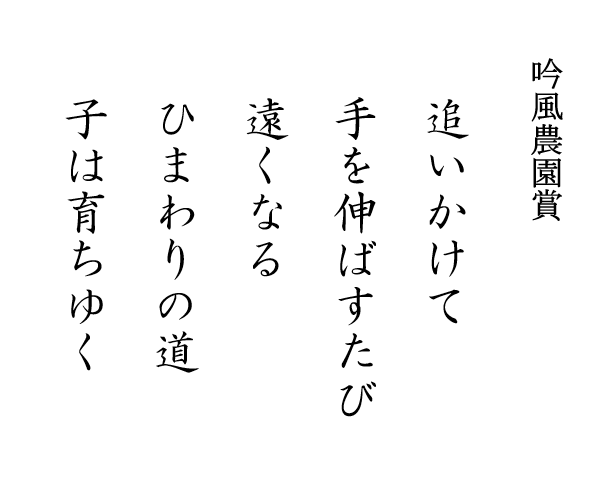 吟風農園賞
追いかけて
手を伸ばすたび
遠くなる
ひまわりの道
子は育ちゆく